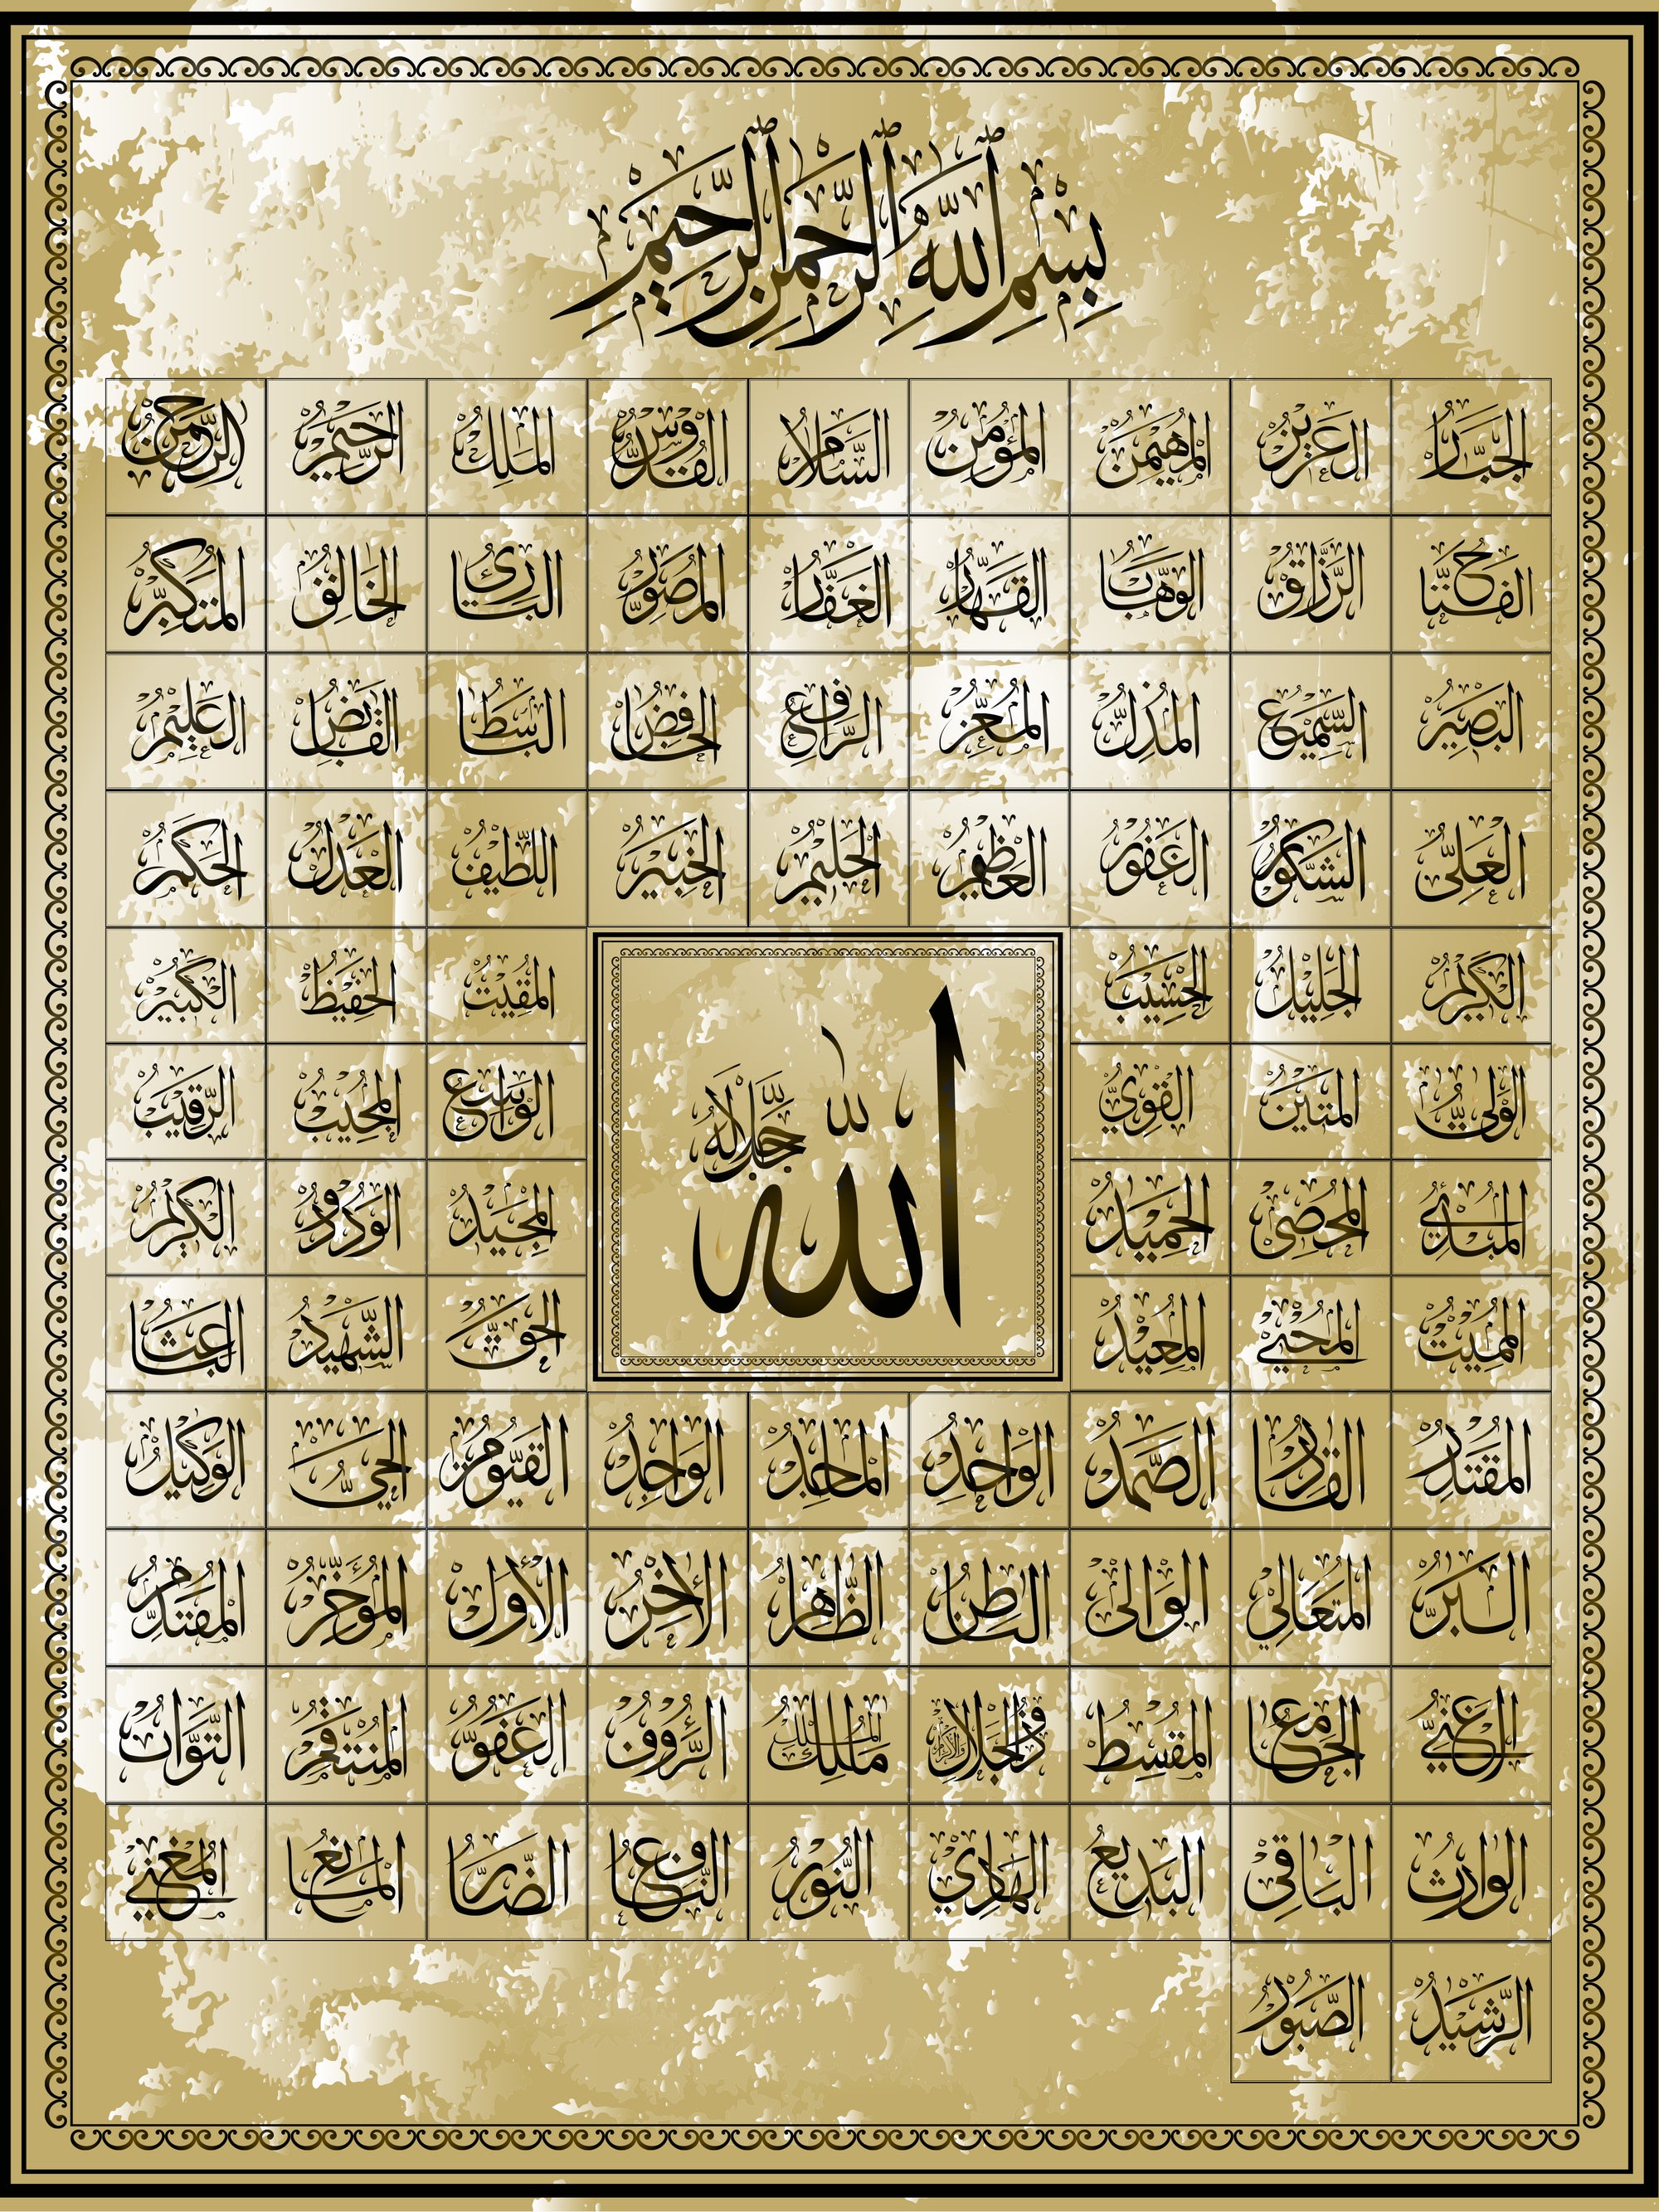 بِسْمِ اللَّهِ الرَّحْمَٰنِ الرَّحِيمِ
الرحمن الرحيم الملك القدوس السلام المؤمن المهيمن العزيز الجبار
المتكبر الخالق البارئ المصور الغفار القهار الوهاب الرزاق الفتاح
العليم القابض الباسط الخافض الرافع المعز المذل السميع البصير
الحكم العدل اللطيف الخبير الحليم العظيم الغفور الشكور العلي
الكبير الحفيظ المقيت الحسيب الجليل الكريم
الرقيب المجيب الواسع القوي المتين الولي
الله جل جلاله
الكريم الودود المجيد الحميد المحصي المبدئ
الباعث الشهيد الحق المعيد المحيي المميت
الوكيل الحي القيوم الواجد الماجد الواحد الصمد القادر المقتدر
المقتدم المؤخر الأول الآخر الظاهر الباطن الوالي المتعالي البر
التواب المنتقم العفو الرءوف مالك الملك ذو الجلال والإكرام المقسط الجامع الغني
المغني المانع الضار النافع النور الهادي البديع الباقي الوارث
الصبور الرشيد